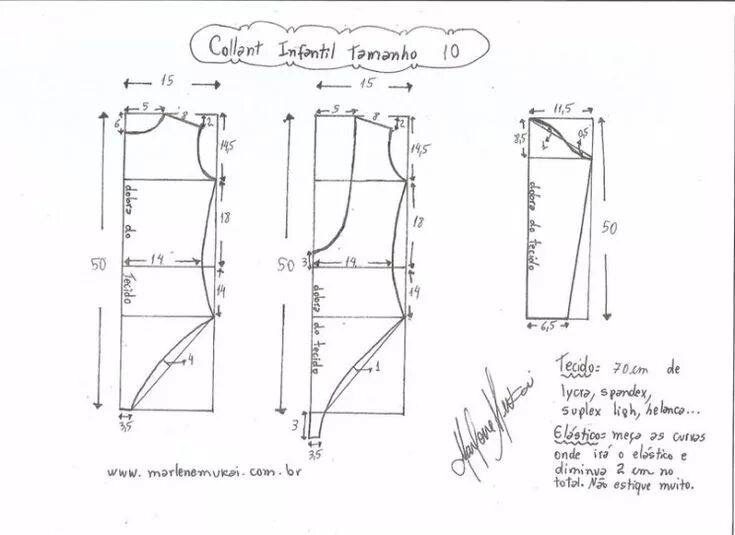 Collant Infantil Tamanho 10
15
5
8
2
6
14,5
dobra do
18
50
14
Tecido
14
4
3,5
15
5
8
2
14,5
18
3
50
14
dobra do tecido
14
1
3
3,5
11,5
8,5
1
0,5
dobra do tecido
50
6,5
Tecido: 70cm de
lycra, spandex,
suplex ligh, helanca...
Elástico: meça as curvas
onde irá o elástico e
diminua 2 cm no
total. Não estique muito.
www.marlenemukai.com.br